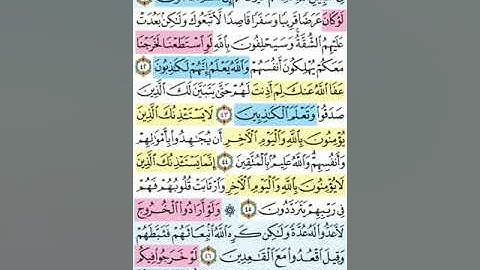 لَوْ كَانَ عَرَضًا قَرِيبًا وَسَفَرًا قَاصِدًا لَّاتَّبَعُوكَ وَلَٰكِنۢ بَعُدَتْ
عَلَيْهِمُ الشُّقَّةُ ۚ وَسَيَحْلِفُونَ بِاللَّهِ لَوِ اسْتَطَعْنَا لَخَرَجْنَا
مَعَكُمْ يُهْلِكُونَ أَنفُسَهُمْ وَاللَّهُ يَعْلَمُ إِنَّهُمْ لَكَاذِبُونَ ٤٢
عَفَا اللَّهُ عَنكَ لِمَ أَذِنتَ لَهُمْ حَتَّىٰ يَتَبَيَّنَ لَكَ الَّذِينَ
صَدَقُوا وَتَعْلَمَ الْكَاذِبِينَ ٤٣ لَا يَسْتَأْذِنُكَ الَّذِينَ
يُؤْمِنُونَ بِاللَّهِ وَالْيَوْمِ الْآخِرِ أَن يُجَاهِدُوا بِأَمْوَالِهِمْ
وَأَنفُسِهِمْ ۗ وَاللَّهُ عَلِيمٌۢ بِالْمُتَّقِينَ ٤٤ إِنَّمَا يَسْتَأْذِنُكَ الَّذِينَ
لَا يُؤْمِنُونَ بِاللَّهِ وَالْيَوْمِ الْآخِرِ وَارْتَابَتْ قُلُوبُهُمْ فَهُمْ
فِي رَيْبِهِمْ يَتَرَدَّدُونَ ٤٥ ۞ وَلَوْ أَرَادُوا الْخُرُوجَ
لَأَعَدُّوا لَهُ عُدَّةً وَلَٰكِن كَرِهَ اللَّهُ انۢبِعَاثَهُمْ فَثَبَّطَهُمْ
وَقِيلَ اقْعُدُوا مَعَ الْقَاعِدِينَ ٤٦ لَوْ خَرَجُوا فِيكُم